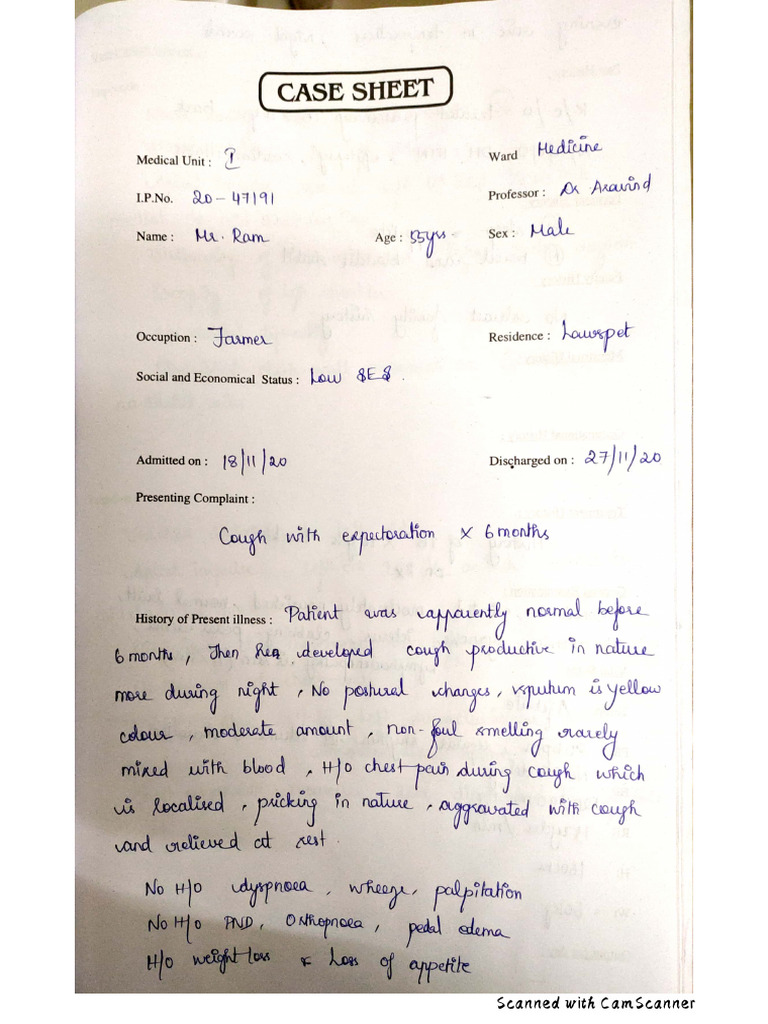 CASE SHEET
Medical Unit : I Ward Medicine
I.P.No. 20-47191 Professor : Dr Aravind
Name : Mr. Ram Age : 55yrs Sex : Male
Occuption : Farmer Residence : Lawspet
Social and Economical Status : Low SES.
Admitted on : 18/11/20 Discharged on : 27/11/20
Presenting Complaint :
Cough with expectoration x 6 months
History of Present illness : Patient was apparently normal before
6 months, then he developed cough productive in nature
more during night, No postural changes, sputum is yellow
colour, moderate amount, non-foul smelling rarely
mixed with blood, H/O chest pain during cough which
is localised, pricking in nature, aggravated with cough
and relieved at rest.
No H/O dyspnoea, wheeze, palpitation
No H/O PND, Orthopnoea, pedal edema
H/O weight loss & Loss of appetite
Scanned with CamScanner